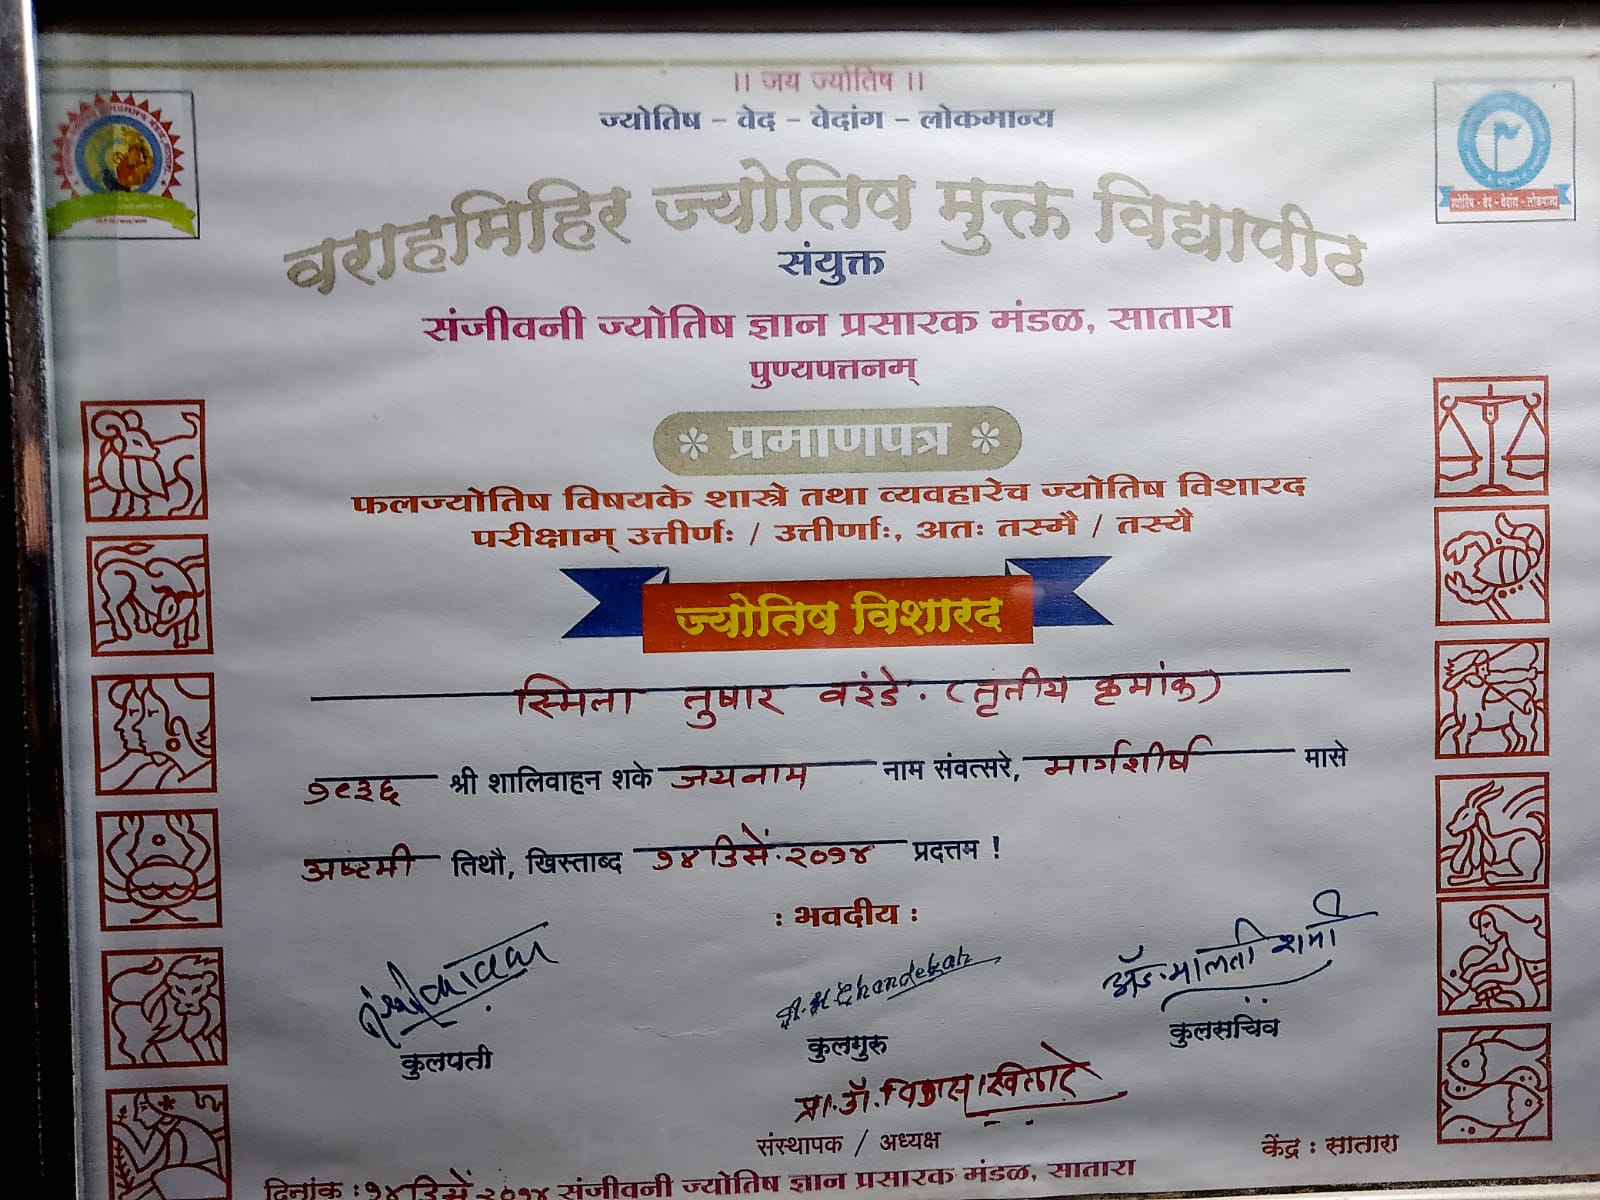 ।। जय ज्योतिष ।।
ज्योतिष - वेद - वेदांग - लोकमान्य
वराहमिहिर ज्योतिष मुक्त विद्यापीठ
संयुक्त
ज्योतिष - वेद - वेदांग - लोकमान्य
संजीवनी ज्योतिष ज्ञान प्रसारक मंडळ, सातारा
पुण्यपत्तनम्
प्रमाणपत्र
फलज्योतिष विषयके शास्त्रे तथा व्यवहारेच ज्योतिष विशारद
परीक्षाम् उत्तीर्णः / उत्तीर्णाः, अतः तस्मै / तस्यै
ज्योतिष विशारद
स्मिता तुषार वरंडे. (तृतीय क्रमांक)
१९३६ श्री शालिवाहन शके जयनाम नाम संवत्सरे, मार्गशीर्ष मासे
अष्टमी तिथौ, ख्रिस्ताब्द १४ डिसें. २०१४ प्रदत्तम !
: भवदीय :
Chandekar
डॉ. मालती शर्मा
कुलपती
कुलगुरु
कुलसचिव
प्रा. डॉ. विकास खिलारे
संस्थापक / अध्यक्ष
केंद्र : सातारा
दिनांक : १४ डिसें २०१४ संजीवनी ज्योतिष ज्ञान प्रसारक मंडळ, सातारा